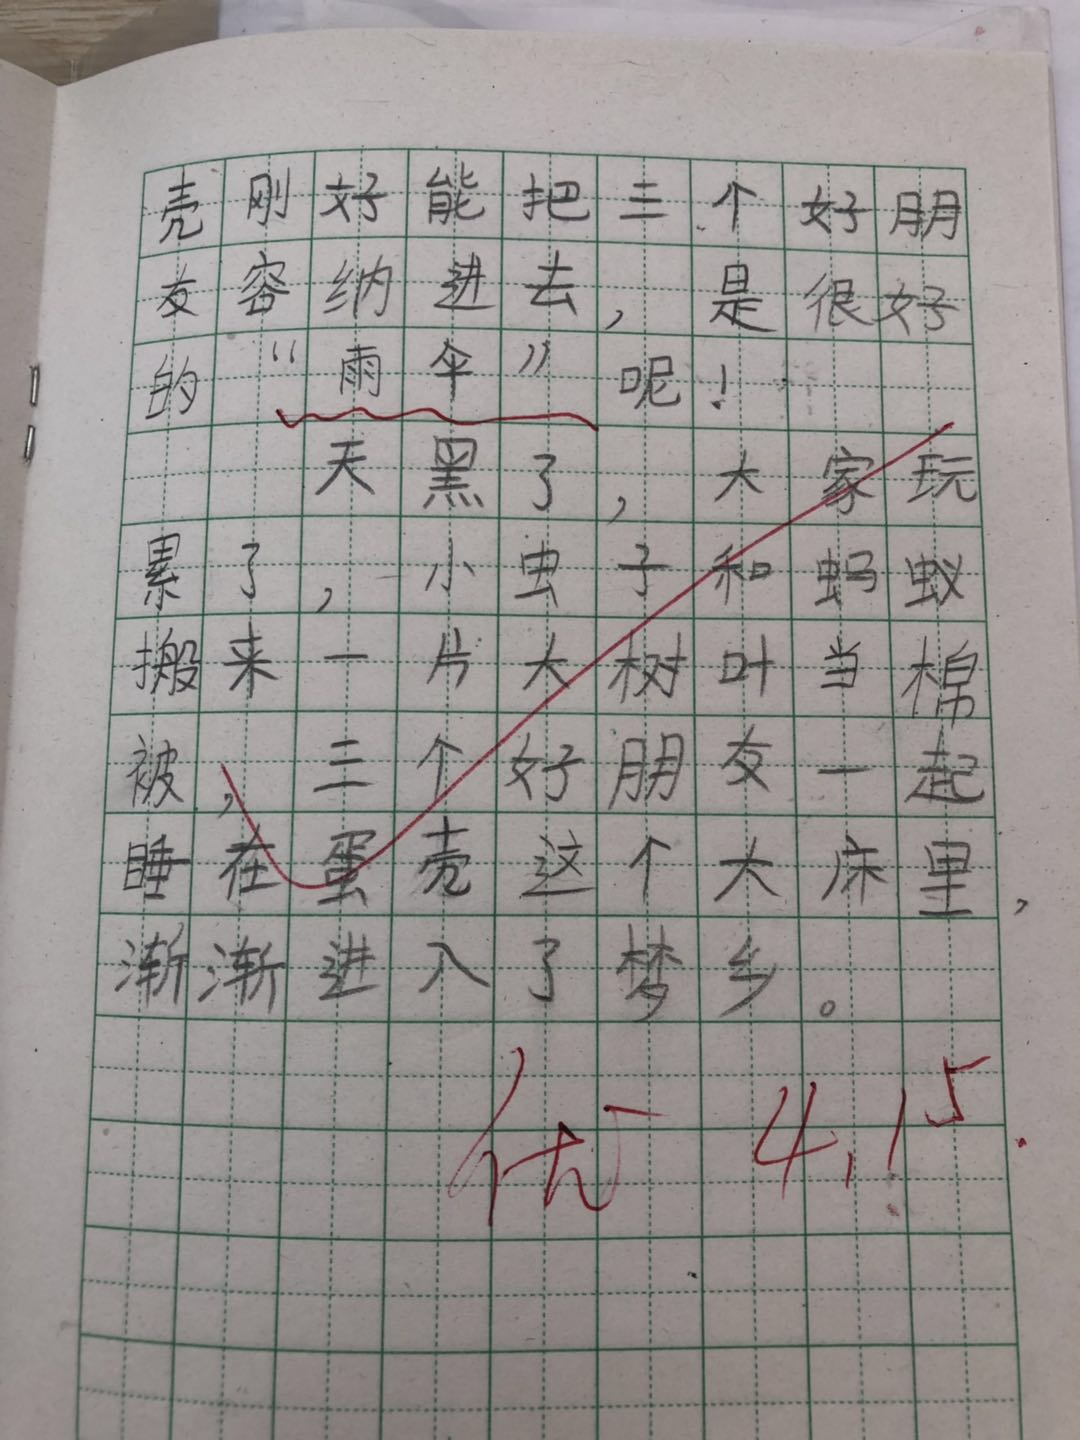 壳刚好能把三个好朋
友容纳进去，是很好
的“雨伞”呢！
天黑了，大家玩
累了，小虫子和蚂蚁
搬来一片大树叶当棉
被，三个好朋友一起
睡在蛋壳这个大床里，
渐渐进入了梦乡。
优 4.15